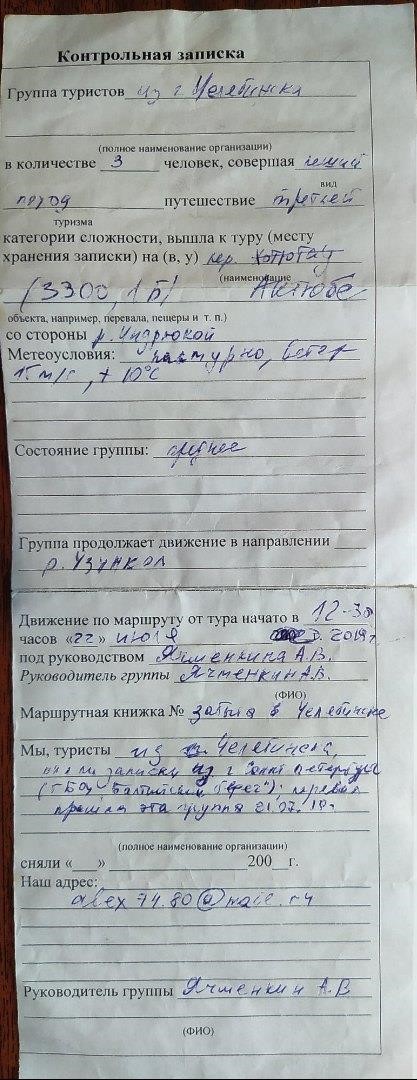 Контрольная записка
Группа туристов из г. Челябинска
(полное наименование организации)
в количестве 3 человек, совершая пеший
вид
поход путешествие третьей
туризма
категории сложности, вышла к туру (месту
хранения записки) на (в, у) пер.
(наименование
(3300, 1Б) Актюбе
объекта, например, перевала, пещеры и т. п.)
со стороны р. Индрюкой
Метеоусловия: пасмурно, ветер
15 м/с, +10°C
Состояние группы: среднее
Группа продолжает движение в направлении
р. Узункол
Движение по маршруту от тура начато в 12-30
часов «22» июля 2019г
под руководством Ячменкина А.В.
Руководитель группы Ячменкин А.В.
(ФИО)
Маршрутная книжка № забыта в Челябинске
Мы, туристы из г. Челябинска,
сняли записку из г Санкт Петербурга
(ГБОУ "Балтийский берег"), перевал
прошла эта группа 21.07.19.
(полное наименование организации)
сняли «___» 200 г.
Наш адрес:
alex74.80@mail.ru
Руководитель группы Ячменкин А.В
(ФИО)